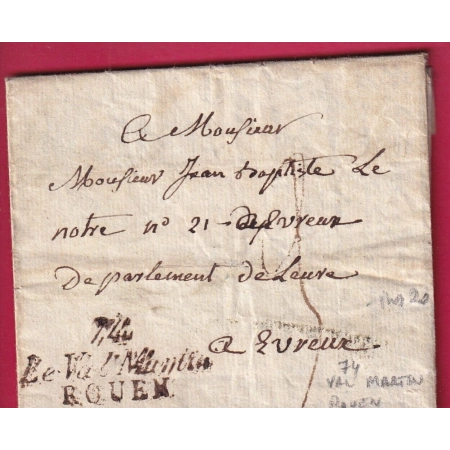 A Monsieur
Monsieur Jean Baptiste Le
notre n° 21 Evreux
Departement de Leure
A Evreux
74
Le Val Martin
ROUEN
74
VAL MARTIN
ROUEN